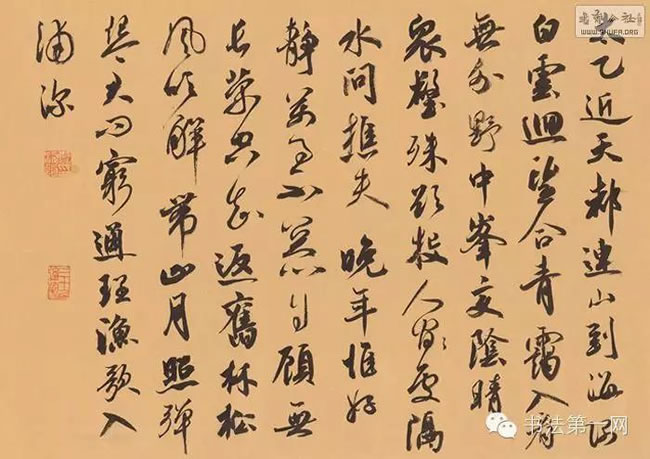 太乙近天都連山到海隅
白雲迴望合青靄入看
無分野中峯變陰晴
衆壑殊欲投人處宿隔
水問樵夫 晚年惟好
靜萬事不關心自顧無
長策空知返舊林松
風吹解帶山月照彈
琴君問窮通理漁歌入
浦深
WWW.SHUFA.ORG
书法第一网